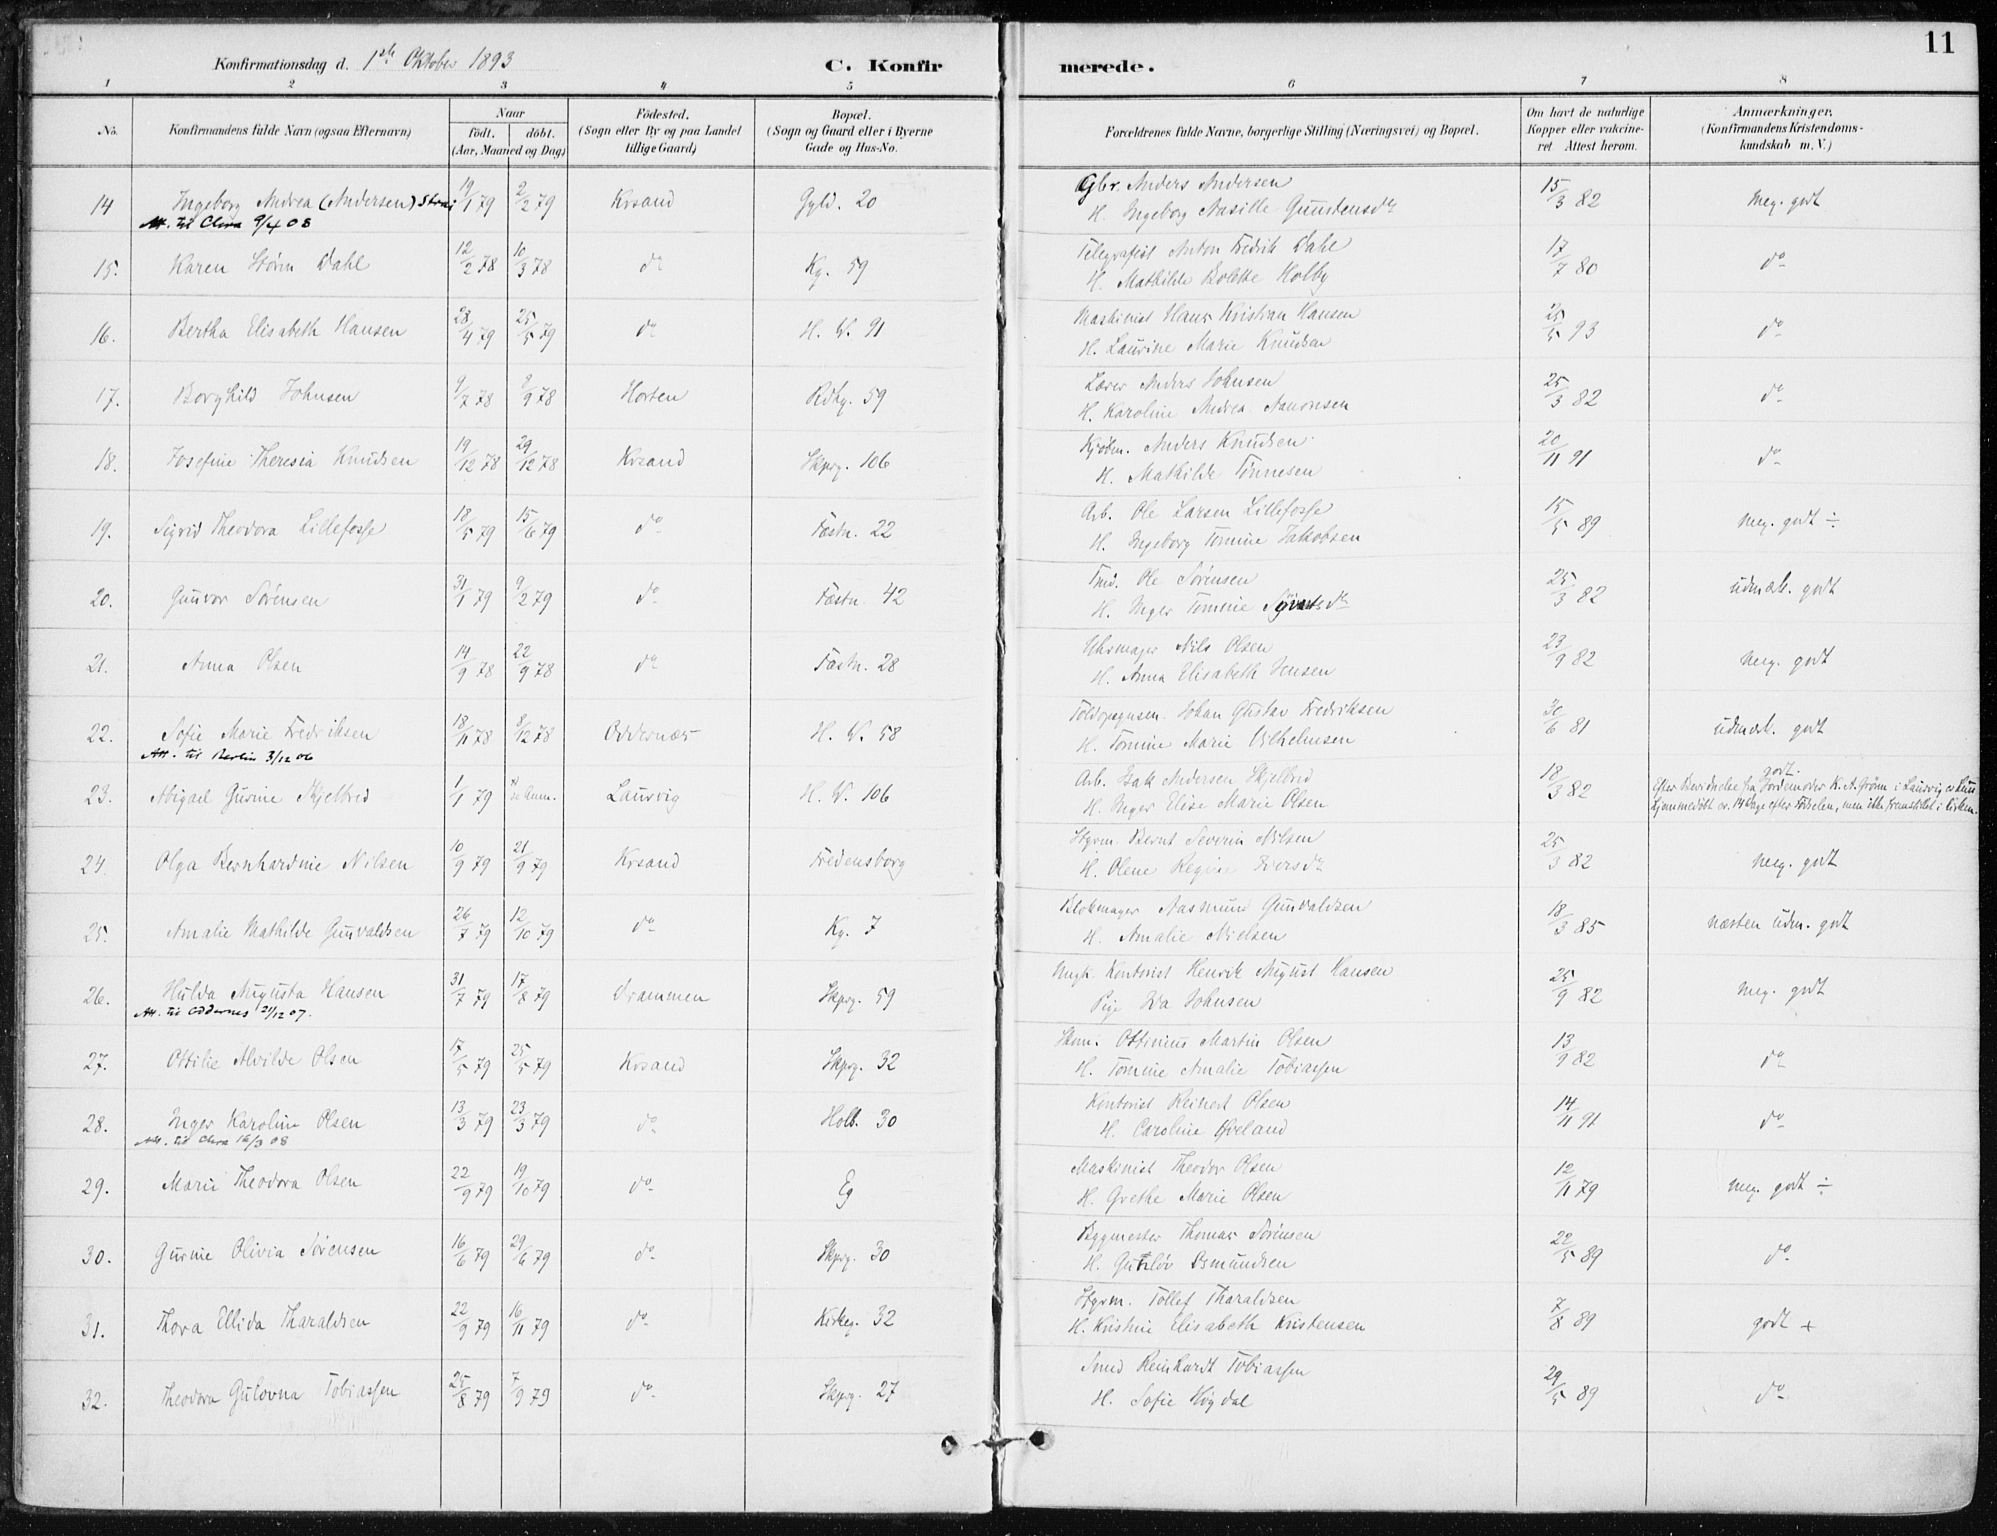 Konfirmationsdag d. 1ste Oktober 1893
C. Konfirmerede.
11
1 2 3 4 5 6 7 8
No. | Konfirmandens fulde Navn (ogsaa Efternavn) | Naar födt. döbt. (Aar, Maaned og Dag) | Födested. (Sogn eller By og paa Landet tillige Gaard) | Bopæl. (Sogn og Gaard eller i Byerne Gade og Hus-No. | Forældrenes fulde Navne, borgerlige Stilling (Næringsvei) og Bopæl. | Om havt de naturlige Kopper eller vakcineret. Attest herom. | Anmærkninger. (Konfirmandens Kristendomskundskab m. V.)
14 | Ingeborg Andrea (Andersen) | 19/1 79 | 2/2 79 | Krsand | Gyld. 20 | Gbr. Anders Andersen | 15/3 82 | meg. godt
Att. til Chra 9/4 08 | H. Ingeborg Aasille Gundensdr
15. | Karen Störm Dahl | 12/2 78 | 10/3 78 | do | Kg. 59 | Telegrafist Anton Fredrik Dahl | 17/7 80 | do
H. Mathilde Bolette Holby
16. | Bertha Elisabeth Hansen | 28/4 79 | 25/5 79 | do | H. W. 91 | Maskinist Hans Kristian Hansen | 25/5 93 | do
H. Laurine Marie Knudsen
17. | Borghild Johnsen | 9/7 78 | 8/9 78 | Horten | Rdhg. 59 | Lærer Anders Johnsen | 25/3 82 | do
H. Karoline Andrea Aanonsen
18. | Josefine Theresia Knudsen | 19/12 78 | 29/12 78 | Krsand | Skprg. 106 | Kjöbm. Anders Knudsen | 20/11 91 | do
H. Mathilde Tönnesen
19. | Sigrid Theodora Lillefosse | 18/5 79 | 15/6 79 | do | Fæstn. 22 | Arb. Ole Larsen Lillefosse | 15/5 89 | meg. godt ÷
H. Ingeborg Tomine Jakobsen
20. | Gunvor Sörensen | 31/1 79 | 9/2 79 | do | Fæstn. 42 | Tmd. Ole Sörensen | 25/3 82 | udmærk. godt
H. Inger Tomine Syvertsdr
21. | Anna Olsen | 14/9 78 | 22/9 78 | do | Fæstn. 28 | Uhrmager Nils Olsen | 23/9 82 | meg. godt
H. Anna Elisabeth Jensen
22. | Sofie Marie Fredriksen | 18/11 78 | 8/12 78 | Oddernæs | H. W. 58 | Toldopsynsm. Johan Gustav Fredriksen | 30/6 81 | udmærk. godt
Att. til Berlin 3/12 06 | H. Tomine Marie Vilhelmsen
23. | Abigael Gurine Skjelbred | 1/1 79 | se Anm. | Laurvig | H. W. 106 | Arb. Isak Andersen Skjelbred | 18/3 82 | godt.
H. Inger Elise Marie Olsen | Efter Bevidnelse fra Jordemoder K. A. Grönn i Laurvig er hun
hjemmedöbt ca. 14 Dage efter Födselen, men ikke fremstillet i Kirken.
24. | Olga Bernhardine Nilsen | 10/9 79 | 21/9 79 | Krsand | Fredensborg | Styrm. Bernt Severin Nilsen | 25/3 82 | meg. godt
H. Olene Regine Iversdr
25. | Amalie Mathilde Gunvaldsen | 26/7 79 | 12/10 79 | do | Kg. 7 | Blokmager Aasmund Gunvaldsen | 18/3 85 | næsten udm. godt
H. Amalie Nielsen
26. | Hulda Augusta Hansen | 31/7 79 | 17/8 79 | Drammen | Skprg. 59 | Ungk. Kontorist Henrik August Hansen | 25/9 82 | meg. godt
Att. til Oddernes 21/12 07. | Pige Ida Johnsen
27. | Ottilie Alvilde Olsen | 17/5 79 | 25/5 79 | Krsand | Skprg. 32 | Skom. Ottinius Martin Olsen | 13/9 82 | do
H. Tomine Amalie Tobiassen
28. | Inger Karoline Olsen | 13/3 79 | 23/3 79 | do | Holb. 30 | Kontorist Reinert Olsen | 14/11 91 | do
Att. til Chra 16/3 08 | H. Caroline Öveland
29. | Marie Theodora Olsen | 22/9 79 | 19/10 79 | do | Eg | Maskinist Theodor Olsen | 12/11 79 | meg. godt ÷
H. Grethe Marie Olsen
30. | Gurine Olivia Sörensen | 16/6 79 | 29/6 79 | do | Skprg. 30 | Bygmester Thomas Sörensen | 22/5 89 | do
H. Gunlöv Osmundsen
31. | Thora Ellida Tharaldsen | 22/9 79 | 16/11 79 | do | Kirkeg. 32 | Styrm. Tollef Tharaldsen | 7/8 89 | godt +
H. Kristine Elisabeth Kristensen
32. | Theodora Gulovna Tobiassen | 25/8 79 | 7/9 79 | do | Skprg. 27 | Smed Reinhardt Tobiassen | 29/5 89 | do
H. Sofie Högdal